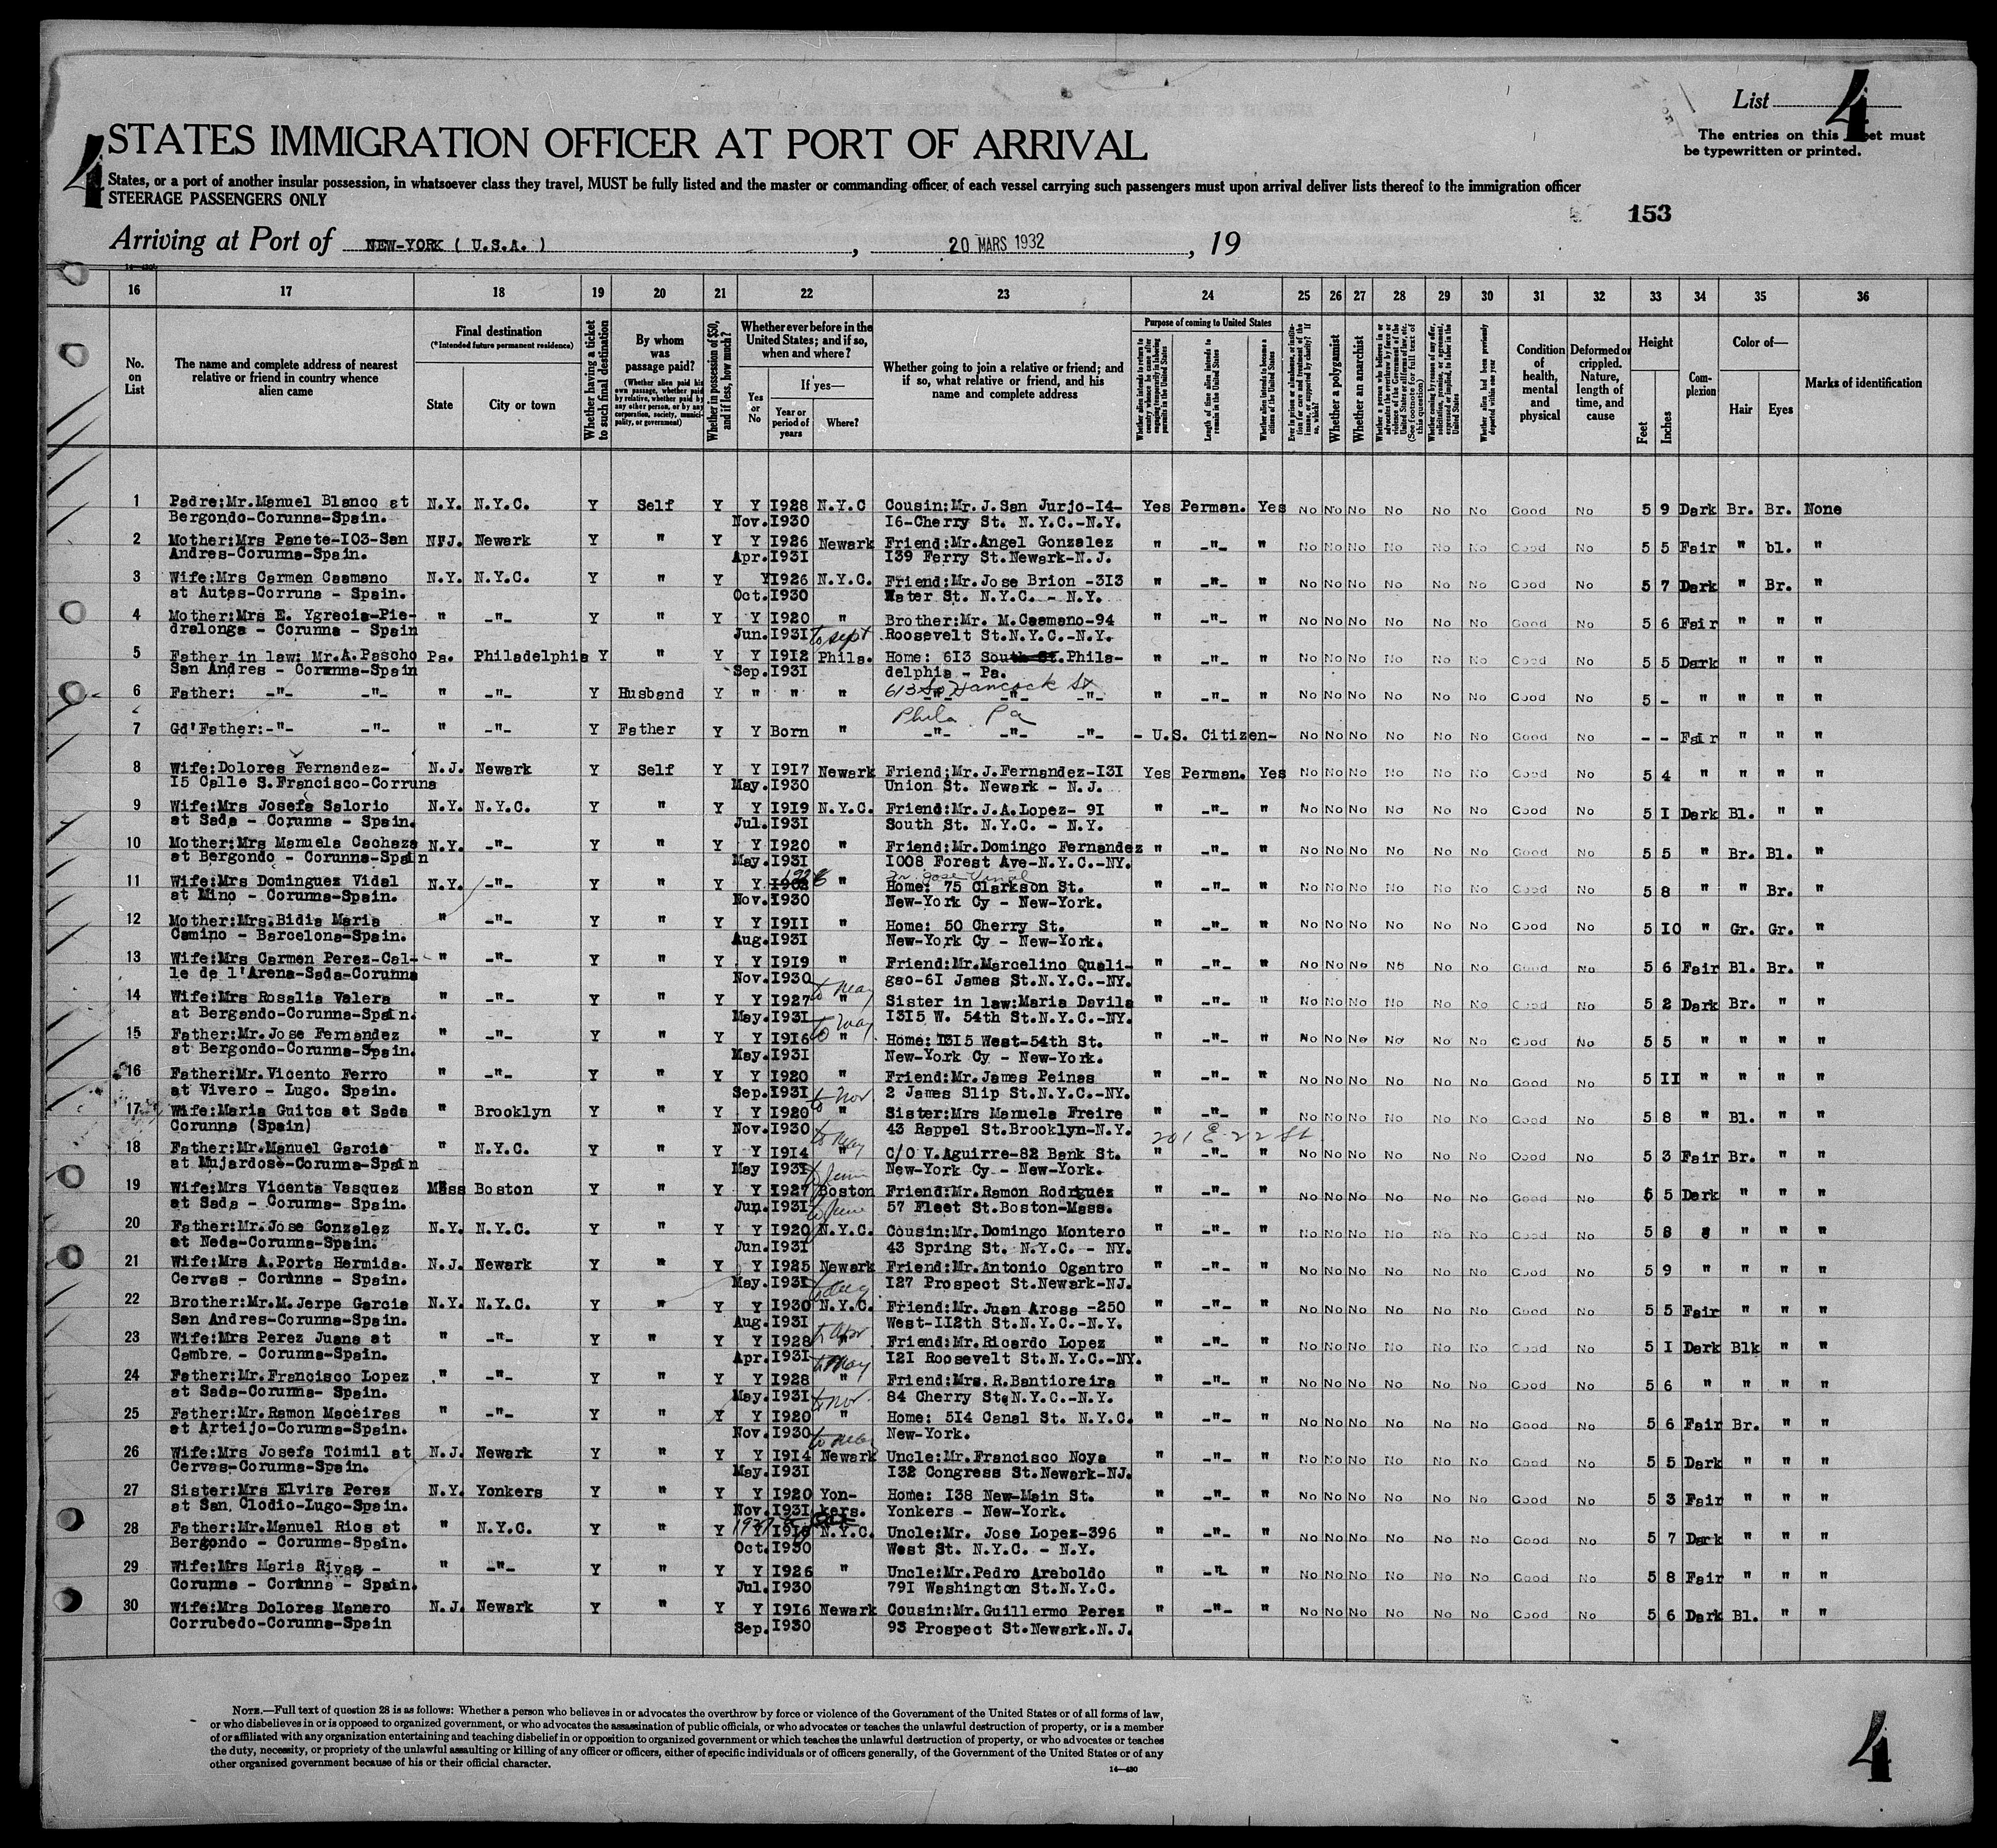 List 4
The entries on this sheet must
be typewritten or printed.
4
STATES IMMIGRATION OFFICER AT PORT OF ARRIVAL
States, or a port of another insular possession, in whatsoever class they travel, MUST be fully listed and the master or commanding officer of each vessel carrying such passengers must upon arrival deliver lists thereof to the immigration officer
STEERAGE PASSENGERS ONLY
153
Arriving at Port of NEW-YORK ( U.S.A. ), 20 MARS 1932, 19
16 17 18 19 20 21 22 23 24 25 26 27 28 29 30 31 32 33 34 35 36
No. on List
The name and complete address of nearest relative or friend in country whence alien came
Final destination (*Intended future permanent residence)
State
City or town
Whether having a ticket to such final destination
By whom was passage paid?
(Whether alien paid his own passage, whether paid by relative, whether paid by any other person, or by any corporation, society, municipality, or government)
Whether in possession of $50, and if less, how much?
Whether ever before in the United States; and if so, when and where?
Yes or No
If yes—
Year or period of years
Where?
Whether going to join a relative or friend; and if so, what relative or friend, and his name and complete address
Purpose of coming to United States
Length of time alien intends to remain in the United States
Whether alien intends to become a citizen of the United States
Whether a polygamist
Whether an anarchist
Whether alien had been previously deported within one year
Condition of health, mental and physical
Deformed or crippled. Nature, length of time, and cause
Height
Feet
Inches
Complexion
Color of—
Hair
Eyes
Marks of identification
1 Padre:Mr.Manuel Blanco at N.Y. N.Y.C. Y Self Y Y I928 N.Y.C Cousin:Mr.J.San Jurjo-I4- Yes Perman. Yes No No No No No No Good No 5 9 Dark Br. Br. None
Bergondo-Corunna-Spain. Nov.I930 I6-Cherry St. N.Y.C.-N.Y.
2 Mother:Mrs Panete-I03-San N.J. Newark Y " Y Y I926 Newark Friend:Mr.Angel Gonzalez " -"- " No No No No No No Good No 5 5 Fair " bl. "
Andres-Corunna-Spain. Apr.I93I I39 Ferry St.Newark-N.J.
3 Wife:Mrs Carmen Caamano N.Y. N.Y.C. Y " Y Y I926 N.Y.C. Friend:Mr.Jose Brion -3I3 " -"- " No No No No No No Good No 5 7 Dark " Br. "
at Autes-Corruna - Spain. Oct.I930 Water St. N.Y.C. - N.Y.
4 Mother:Mrs E. Ygrecia-Pie- " -"- Y " Y Y I920 " Brother:Mr. M.Caamano-94 " -"- " No No No No No No Good No 5 6 Fair " " "
dralonga - Corunna - Spain Jun.I93I to sept Roosevelt St.N.Y.C.-N.Y.
5 Father in law: Mr.A.Pascho Pa. Philadelphia Y " Y Y I9I2 Phila. Home: 6I3 South St.Phila- " -"- " No No No No No No Good No 5 5 Dark " " "
San Andres - Corunna-Spain Sep.I93I delphia - Pa.
6 Father: -"- -"- " -"- Y Husband Y " " " 613 So Hancock St -"- -"- -"- " -"- " No No No No No No Good No 5 - " " " "
Phila. Pa
7 Gd'Father:-"- -"- " -"- Y Father Y Y Born " -"- -"- -"- - U.S. Citizen- No No No No No No Good No - - Fair " " "
8 Wife:Dolores Fernandez- N.J. Newark Y Self Y Y I9I7 Newark Friend:Mr.J.Fernandez-I3I Yes Perman. Yes No No No No No No Good No 5 4 " " " "
I5 Calle S.Francisco-Corruna May.I930 Union St. Newark - N.J.
9 Wife:Mrs Josefa Salorio N.Y. N.Y.C. Y " Y Y I9I9 N.Y.C. Friend:Mr.J.A.Lopez- 9I " -"- " No No No No No No Good No 5 I Dark Bl. " "
at Sada - Corunna - Spain. Jul.I93I South St. N.Y.C. - N.Y.
10 Mother:Mrs Manuela Cachaza N.Y. -"- Y " Y Y I920 " Friend:Mr.Domingo Fernandez " -"- " No No No No No No Good No 5 5 " Br. Bl. "
at Bergondo - Corunna-Spain May.I93I I008 Forest Ave-N.Y.C.-NY.
11 Wife:Mrs Dominguez Vidal N.Y. -"- Y " Y Y " Home: 75 Clarkson St. " -"- " No No No No No No Good No 5 8 " " Br. "
at Mino - Corunna-Spain. Nov.I930 New-York Cy - New-York.
12 Mother:Mrs.Bidia Maria " -"- Y " Y Y I9II " Home: 50 Cherry St. " -"- " No No No No No No Good No 5 I0 " Gr. Gr. "
Camino - Barcelona-Spain. Aug.I93I New-York Cy - New-York.
13 Wife:Mrs Carmen Perez-Cal- " -"- Y " Y Y I9I9 " Friend:Mr.Marcelino Quali- " -"- " No No No No No No Good No 5 6 Fair Bl. Br. "
le de l'Arena-Sada-Corunna Nov.I930 gao-6I James St.N.Y.C.-NY.
14 Wife:Mrs Rosalia Valera " -"- Y " Y Y I927 to May " Sister in law:Maria Davila " -"- " No No No No No No Good No 5 2 Dark Br. " "
at Bergondo-Corunna-Spain. May.I93I I3I5 W. 54th St.N.Y.C.-NY.
15 Father:Mr.Jose Fernandez " -"- Y " Y Y I9I6 to May " Home: I3I5 West-54th St. " -"- " No No No No No No Good No 5 5 " " " "
at Bergondo-Corunna-Spain. May.I93I New-York Cy - New-York.
16 Father:Mr.Vicento Ferro " -"- Y " Y Y I920 " Friend:Mr.James Peinas " -"- " No No No No No No Good No 5 II " " " "
at Vivero - Lugo. Spain. Sep.I93I 2 James Slip St.N.Y.C.-NY.
17 Wife:Maria Guitca at Sada " Brooklyn Y " Y Y I920 to Nov " Sister:Mrs Manuela Freire " -"- " No No No No No No Good No 5 8 " Bl. " "
Corunna (Spain) Nov.I930 43 Rappel St.Brooklyn-N.Y. 201 E 22 St.
18 Father:Mr.Manuel Garcia " N.Y.C. Y " Y Y I9I4 to May " C/O V.Aguirre-82 Bank St. " -"- " No No No No No No Good No 5 3 Fair Br. " "
at Mujardose-Corunna-Spain May I93I New-York Cy - New-York.
19 Wife:Mrs Vicenta Vasquez Mass Boston Y " Y Y I927 to June Boston Friend:Mr.Ramon Rodriguez " -"- " No No No No No No Good No 5 5 Dark " " "
at Sada - Corunna- Spain. Jun.I93I 57 Fleet St.Boston-Mass.
20 Father:Mr.Jose Gonzalez N.Y. N.Y.C. Y " Y Y I920 to June N.Y.C. Cousin:Mr.Domingo Montero " -"- " No No No No No No Good No 5 8 " " " "
at Neda-Corunna-Spain. Jun.I93I 43 Spring St. N.Y.C. - NY.
21 Wife:Mrs A.Porta Hermida. N.J. Newark Y " Y Y I925 Newark Friend:Mr.Antonio Ogantro " -"- " No No No No No No Good No 5 9 " " " "
Cervas - Corunna - Spain. May.I93I I27 Prospect St.Newark-NJ.
22 Brother:Mr.M.Jerpe Garcia N.Y. N.Y.C. Y " Y Y I930 to Aug N.Y.C. Friend:Mr.Juan Arosa -250 " -"- " No No No No No No Good No 5 5 Fair " " "
San Andres-Corunna-Spain. Aug.I93I West-II2th St.N.Y.C.-N.Y.
23 Wife:Mrs Perez Juana at " -"- Y " Y Y I928 to Apr " Friend:Mr.Ricardo Lopez " -"- " No No No No No No Good No 5 I Dark Blk " "
Cambre. - Corunna-Spain. Apr.I93I I2I Roosevelt St.N.Y.C.-NY.
24 Father:Mr.Francisco Lopez " -"- Y " Y Y I928 to May " Friend:Mrs.R.Bantioreira " -"- " No No No No No No Good No 5 6 " " " "
at Sada-Corunna- Spain. May.I93I 84 Cherry St.N.Y.C.-N.Y.
25 Father:Mr.Ramon Maceiras " -"- Y " Y Y I920 to Nov. " Home: 5I4 Canal St. N.Y.C. " -"- " No No No No No No Good No 5 6 Fair Br. " "
at Arteijo-Corunna-Spain. Nov.I930 New-York.
26 Wife:Mrs Josefa Toimil at N.J. Newark Y " Y Y I9I4 to May Newark Uncle:Mr.Francisco Noya " -"- " No No No No No No Good No 5 5 Dark " " "
Cervas-Corunna-Spain. May.I93I I32 Congress St.Newark-NJ.
27 Sister:Mrs Elvira Perez N.Y. Yonkers Y " Y Y I920 Yon- Home: I38 New-Main St. " -"- " No No No No No No Good No 5 3 Fair " " "
at San Clodio-Lugo-Spain. Nov.I93I kers. Yonkers - New-York.
28 Father:Mr.Manuel Rios at " N.Y.C. Y " Y Y N.Y.C. Uncle:Mr. Jose Lopez-396 " -"- " No No No No No No Good No 5 7 Dark " " "
Bergondo - Corunna-Spain. Oct.I930 West St. N.Y.C. - N.Y.
29 Wife:Mrs Maria Rivas - " -"- Y " Y Y I926 " Uncle:Mr.Pedro Areboldo " -"- " No No No No No No Good No 5 8 Fair " " "
Corunna - Corunna - Spain. Jul.I930 79I Washington St.N.Y.C.
30 Wife:Mrs Dolores Manero N.J. Newark Y " Y Y I9I6 Newark Cousin:Mr.Guillermo Perez " -"- " No No No No No No Good No 5 6 Dark Bl. " "
Corrubedo-Corunna-Spain Sep.I930 93 Prospect St.Newark.N.J.
NOTE.—Full text of question 28 is as follows: Whether a person who believes in or advocates the overthrow by force or violence of the Government of the United States or of all forms of law,
or who disbelieves in or is opposed to organized government, or who advocates the assassination of public officials, or who advocates or teaches the unlawful destruction of property, or is a member
of or affiliated with any organization entertaining and teaching disbelief in or opposition to organized government or which teaches the unlawful destruction of property, or who advocates or teaches
the duty, necessity, or propriety of the unlawful assaulting or killing of any officer or officers, either of specific individuals or of officers generally, of the Government of the United States or of any
other organized government because of his or their official character.
14—430
4